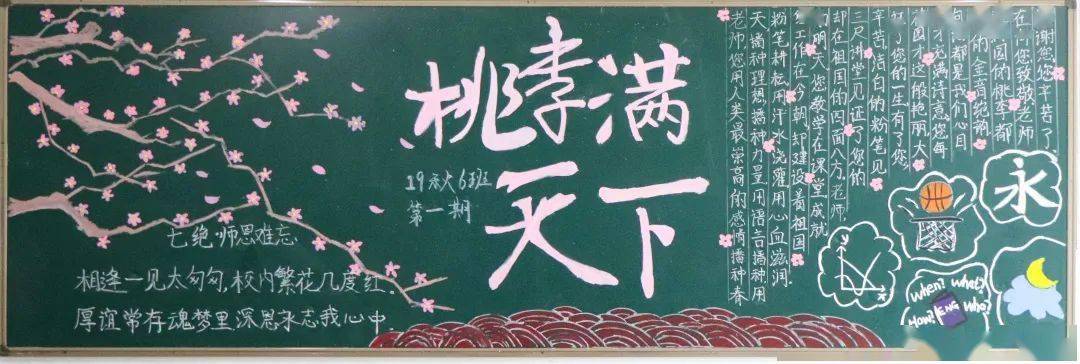 桃李满
天下
19秋6班
第一期
七绝·师恩难忘
相逢一见太匆匆,校内繁花几度红。
厚谊常存魂梦里,深恩永志我心中。
老师,您用人类最崇高的感情播种春
天,播种理想,播种力量,用语言播种,用
粉笔耕耘,用汗水浇灌,用心血滋润
工作在今朝,却建设着祖国
明天,您教学在课堂,成就
却在祖国的四面八方。老师,
三尺讲堂见证了您的
辛苦,洁白的粉笔见
您的一生有了您,
才这般艳丽,大
满诗意,您每
都是我们心目
的
圆的桃李都
您致敬,老师
谢您,您辛苦了
永
When?
What?
How?
ENG
Who?